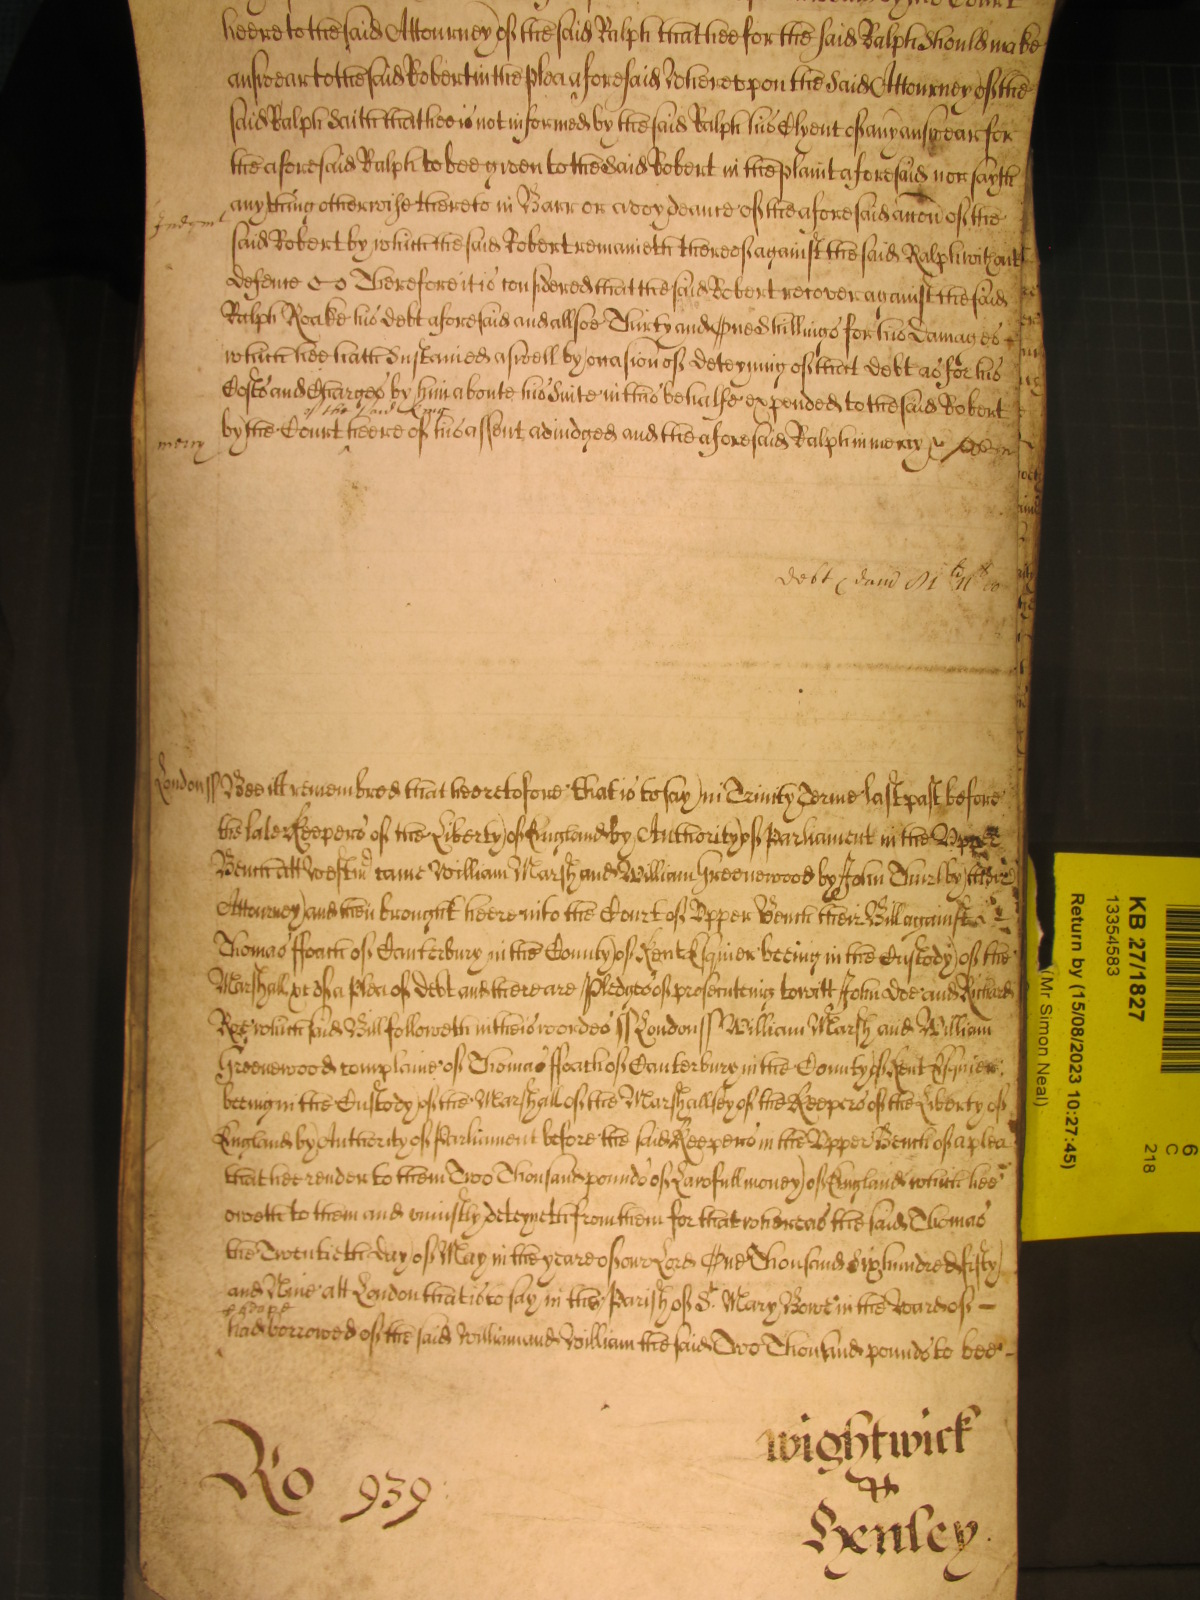 heere to the said Attourney of the said Ralph that hee for the said Ralph should make
answear to the said Robert in the plea aforesaid Whereupon the said Attourney of the
said Ralph saith that hee is not informed by the said Ralph his Clyent of any answear for
the aforesaid Ralph to bee given to the said Robert in the plaint aforesaid nor sayth
any thing otherwise thereto in Barr or avoydance of the aforesaid accon of the
Judgmt
said Robert by which the said Robert remaineth thereof against the said Ralph without
defence &c Therefore it is considered that the said Robert recover against the said
Ralph Roake his debt aforesaid and allsoe Thirty and One shillings for his damages
which hee hath sustained aswell by occasion of deteyning of that debt as for his
Costs and Charges by him aboute his suite in this behalfe expended to the said Robert
of the said Keep
mercy by the Court heere of his assent adiudged and the aforesaid Ralph in mercy &c
debt & dam 81 li 11 s
London ss Bee itt remembred that heeretofore that is to say in Trinity Terme last past before
the late Keepers of the Liberty of England by Authority of Parliament in the Upper
Bench att Westm came William Marsh and William Greenewood by John Thurlby their
Attourney and then brought heere into the Court of Upper Bench their Bill against
Thomas ffoach of Canterbury in the County of Kent Esquier beeing in the Custody of the
Marshall &c of a Plea of Debt and there are Pledges of prosecuteing to witt John Doe and Richard
Roe which said Bill followeth in theis wordes ss London ss William Marsh and William
Greenewood complaine of Thomas ffoach of Canterbury in the County of Kent Esquier
beeing in the Custody of the Marshall of the Marshallsey of the Keepers of the Liberty of
England by Authority of Parliament before the said Keepers in the Upper Bench of a plea
that hee render to them Two Thousand pounds of Lawfull money of England which hee
oweth to them and uniustly deteyneth from them for that whereas the said Thomas
the Twentieth day of May in the yeare of our Lord One Thousand six hundred fifty
and Nine att London that is to say in the Parish of St Mary Bowe in the Ward of
Cheape
had borrowed of the said William and William the said Two Thousand pounds to bee
Ro 939
Wightwick
&
Henley
KB 27/1827
13354583
Return by (15/08/2023 10:27:45)
(Mr Simon Neal)
6
C
218